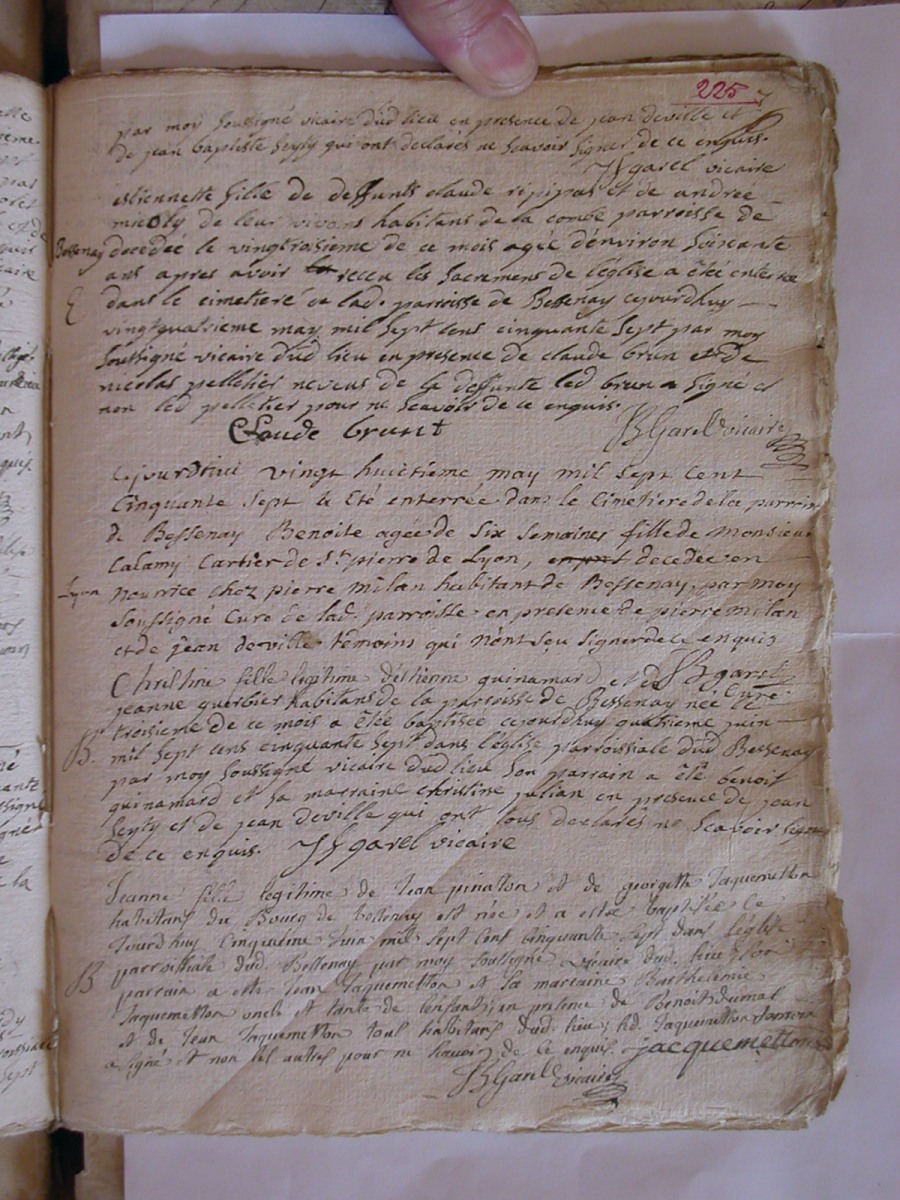 225
par moy soussigné vicaire dud lieu en presence de jean deville et
de jean baptiste seyty qui ont declarés ne scavoir signer de ce enquis.
JBgarel vicaire
etiennette fille de deffunts claude et de andrée
de leur vivans habitans de la combe parroisse de
Bessenay decedeé le vingtroisieme de ce mois agée d'environ soixante
ans apres avoir receu les sacremens de l'église a êtê enterrée
dans le cimetiere de lad. parroisse de Bessenay cejourdhuy
E
vingtquatrieme may mil sept cens cinquante sept par moy
soussigné vicaire dud lieu en presence de claude brun et de
nicolas pelletier neveus de la deffunte led brun a signé et
non led pelletier pour ne scavoir de ce enquis.
Claude brunt JBGarel vicaire
Cejourdhui vingt huitieme may mil sept cent
cinquante sept a eté enterrée dans le Cimetiere de la parroisse
de Bessenay Benoite agée de six semaines fille de Monsieur
Calamy Cartier de St pierre de Lyon, decedée en
Lyon nourrice chez pierre milan habitant de Bessenay, par moy
soussigné Curé de lad. parroisse en presence de pierre milan
et de jean deville témoins qui n'ont seu signer de ce enquis
JBgarel
Curé
Christine fille legitime d'etienne guinamard et de
jeanne querbier habitans de la parroisse de Bessenay née le
troisieme de ce mois a êtée baptisée cejourdhuy quatrieme juin
B. mil sept cens cinquante sept dans l'église parroissiale dud Bessenay
par moy soussigné vicaire dud lieu son parrain a êtê benoit
guinamard et sa marraine christine julian en presence de jean
seyty et de jean deville qui ont tous declarés ne scavoir signer
de ce enquis. JBgarel vicaire
Jeanne fille legitime de Jean pinaton et de georgette Jaquemetton
habitans du Bourg de bessenay est née et a estée baptisée ce
jourdhuy cinquieme juin mil sept cens cinquante sept dans l'église
B parroissiale dud. Bessenay par moy soussigné vicaire dud. lieu son
parrain a esté Jean Jaquemetton et sa marraine Barthelemie
Jaquemetton oncle et tante de l'enfant; en presence de Benoit dumas
et de Jean Jaquemetton tous habitans dud. lieu; led. Jaquemetton parrain
a signé et non les autres pour ne scavoir de ce enquis. jacquemetton
JBGarel vicaire